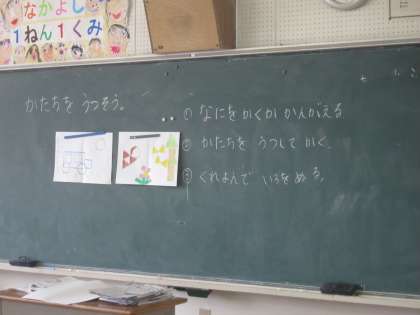 なかよし
1ねん1くみ
かたちを うつそう。
① なにをかくか かんがえる
② かたちを うつして かく。
③ くれよんで いろをぬる。